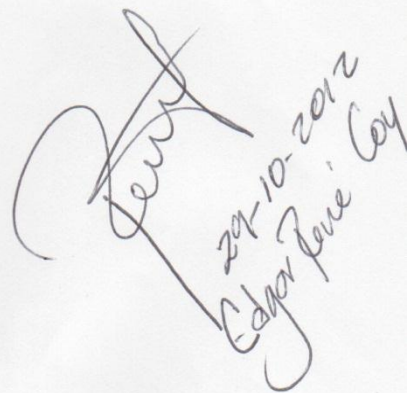 René
29-10-2012
Edgar René Coy